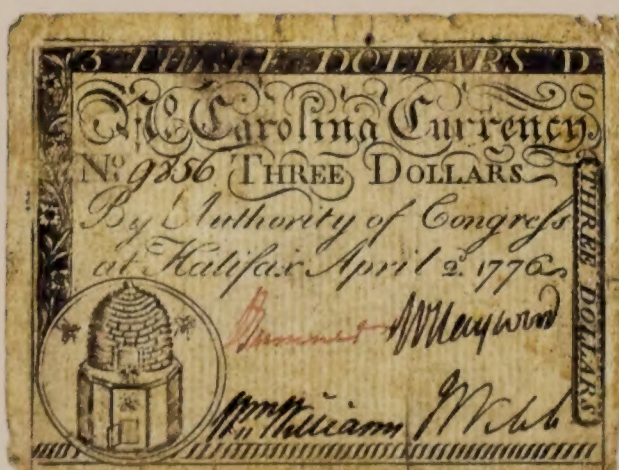 3 THREE DOLLARS D
No Carolina Currency.
No. 9856 THREE DOLLARS
By Authority of Congress
at Halifax April 2d. 1776
THREE DOLLARS
WHaywood
Wm Williams JWebb